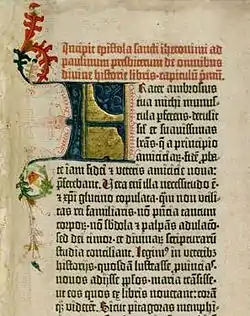 Incipit epistola sancti iheronimi ad
paulinum presbiterum de omnibus
divine historie libris. capitulū p̄mū.
Frater ambrosius
tua michi munus-
cula pferens. detulit
sił et suavissimas
lrās. q̄ a principio
amiciciaȝ. fidē pba-
te iam fidei et veteris amicicie nova:
pferebant. Vera eni illa necessitudo ē.
et xp̄i glutino copulata. quā non utili-
tas rei familiaris. nō pn̄cia tantum
corpoȝ. nō sbdola et palpās adulacō.
sed dei timor. et divinaȝ scripturarum
studia conciliant. Legimȝ in veteribȝ
historijs. quosdā lustrasse puincias.
novos adijsse pplos. maria trāsisse.
ut eos quos ex libris noverant: corā
qȝ viderēt. Sicut pitagoras memphi-